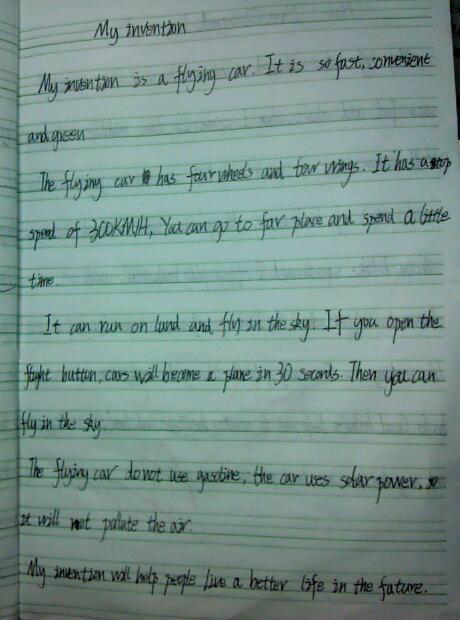 My invention
My invention is a flying car. It is so fast, convenient
and green
The flying car has four wheels and four wings. It has a top
speed of 300KM/H, You can go to far place and spend a little
time.
It can run on land and fly in the sky. If you open the
flight button, cars will become a plane in 30 seconds. Then you can
fly in the sky.
The flying car do not use gasoline, the car uses solar power, so
it will not pollute the air.
My invention will help people live a better life in the future.